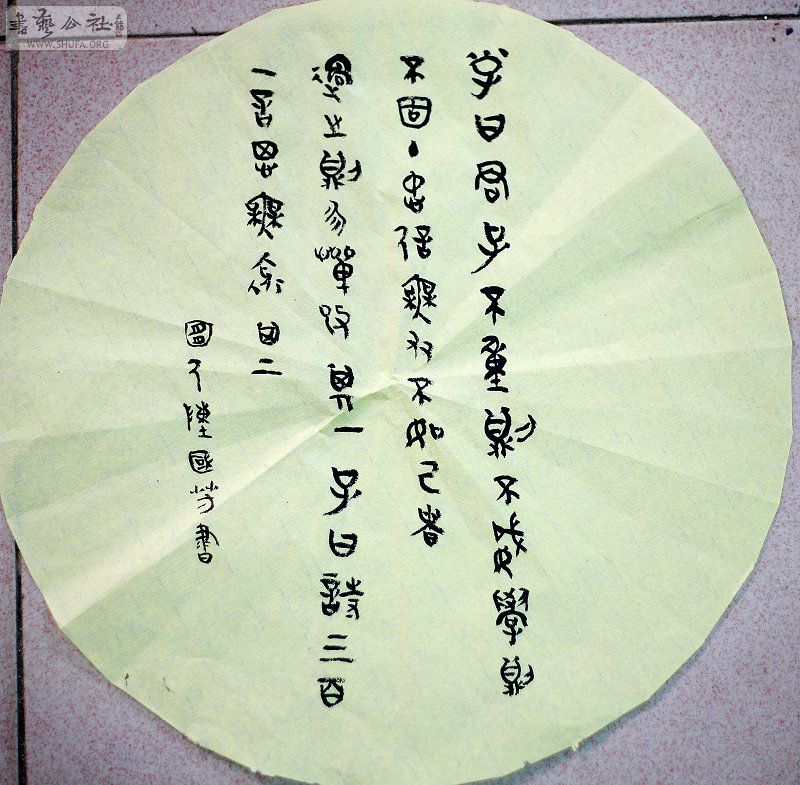 書藝公社
WWW.SHUFA.ORG
子曰君子不重則不威學則
不固主忠信無友不如己者
過之則勿憚改其一子曰詩三百
一言思無邪其二
國芳書